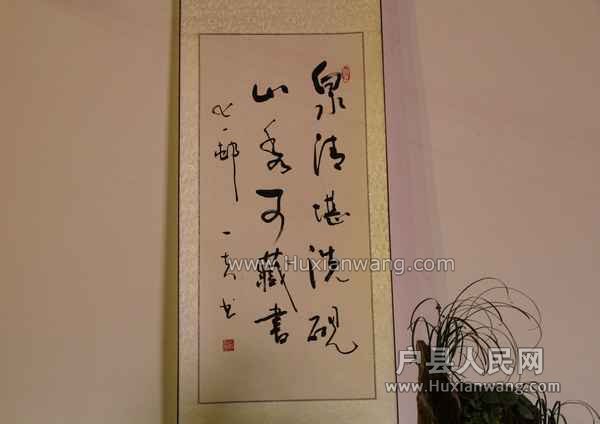 泉清堪洗砚
山秀可藏书
www.Huxianwang.com
户县人民网
www.Huxianwang.com